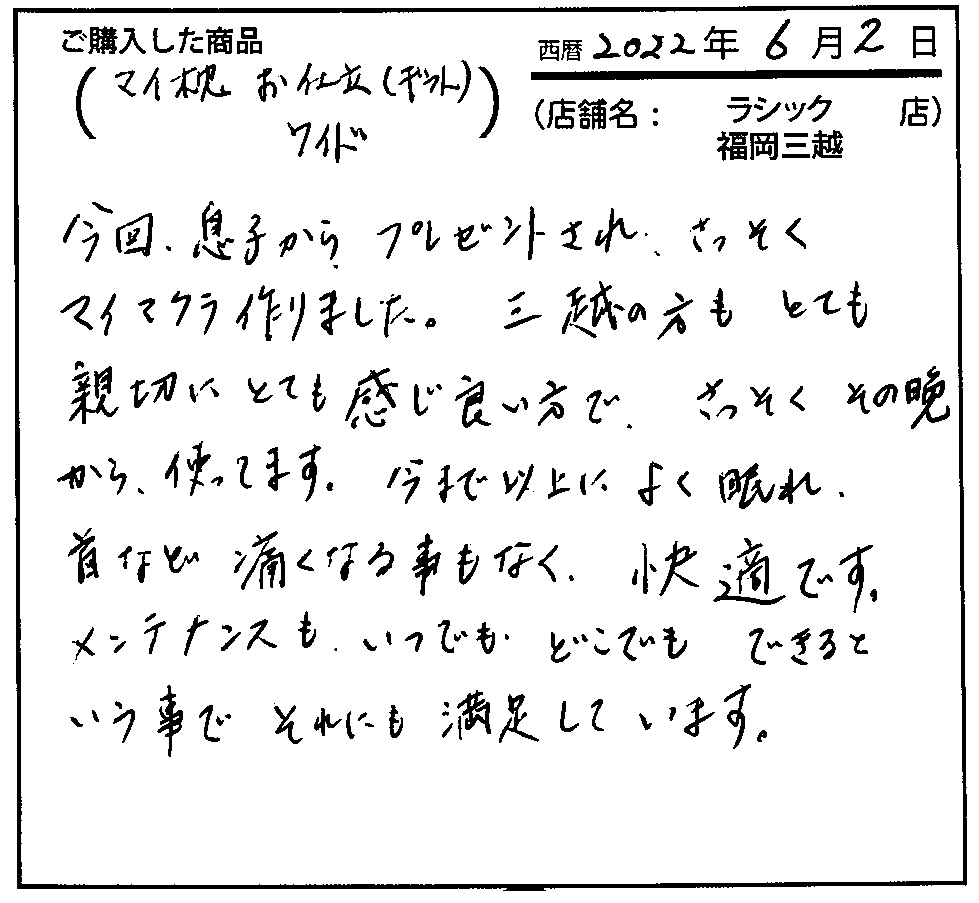 ご購入した商品
西暦 2022年 6月 2日
(マイ枕 お仕立(ギフト)
ワイド)
(店舗名: ラシック 福岡三越 店)
今回、息子から、プレゼントされ、さっそく
マイマクラ作りました。 三越の方も とても
親切に とても 感じ良い方で、 さっそく その晩
から、使ってます。 今まで以上に よく 眠れ、
首など 痛くなる事もなく、 快適です。
メンテナンスも、いつでも どこでも できると
いう事で それにも 満足して います。